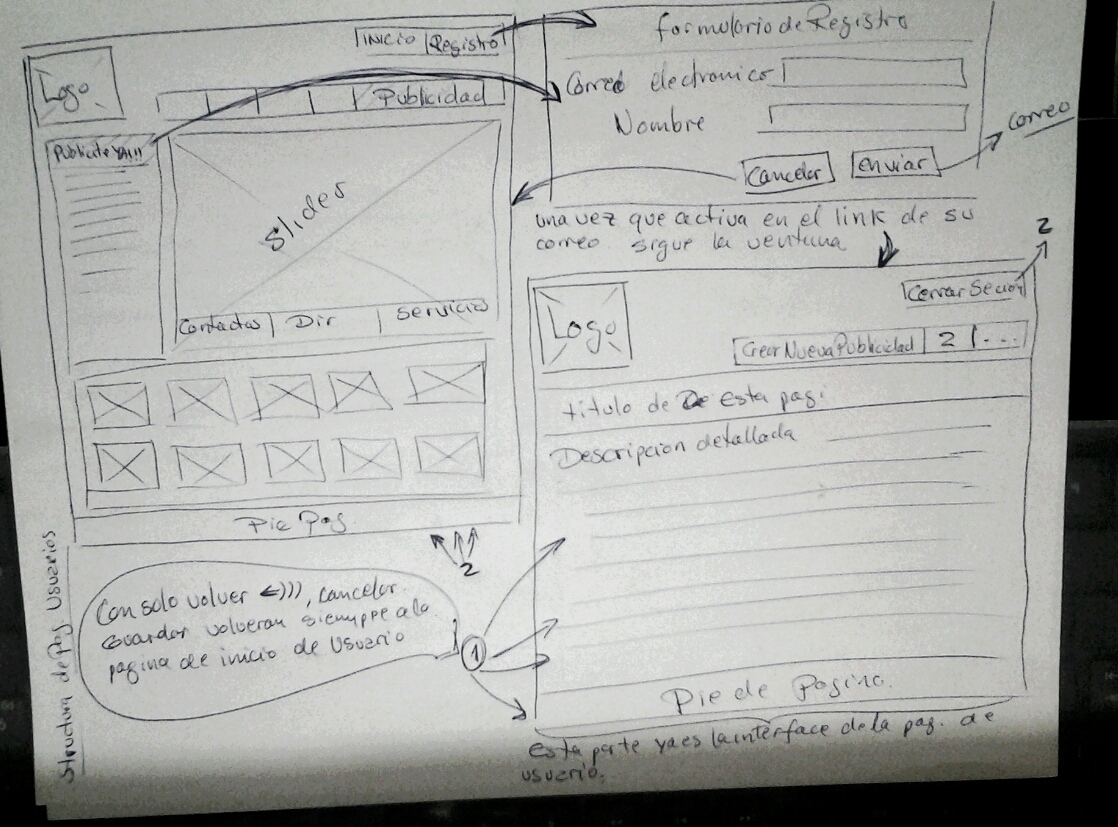 INICIO Registro
Logo
Publicidad
Publicite YA!!!
Slider
Contactos Dir Servicios
Pie Pag
2
Structura de Pag Usuarios
Con solo volver <-))), cancelar
Guardar volveran siempre a la
pagina de inicio de Usuario
1
formulario de Registro
Correo electronico
Nombre
Cancelar enviar
Correo
una vez que activa en el link de su
correo sigue la ventana
2
Cerrar Secion
Logo
Crear Nueva Publicidad 2 ...
titulo de De esta pag:
Descripcion detallada
Pie de Pagina.
esta parte ya es la interface de la pag. de
usuario.